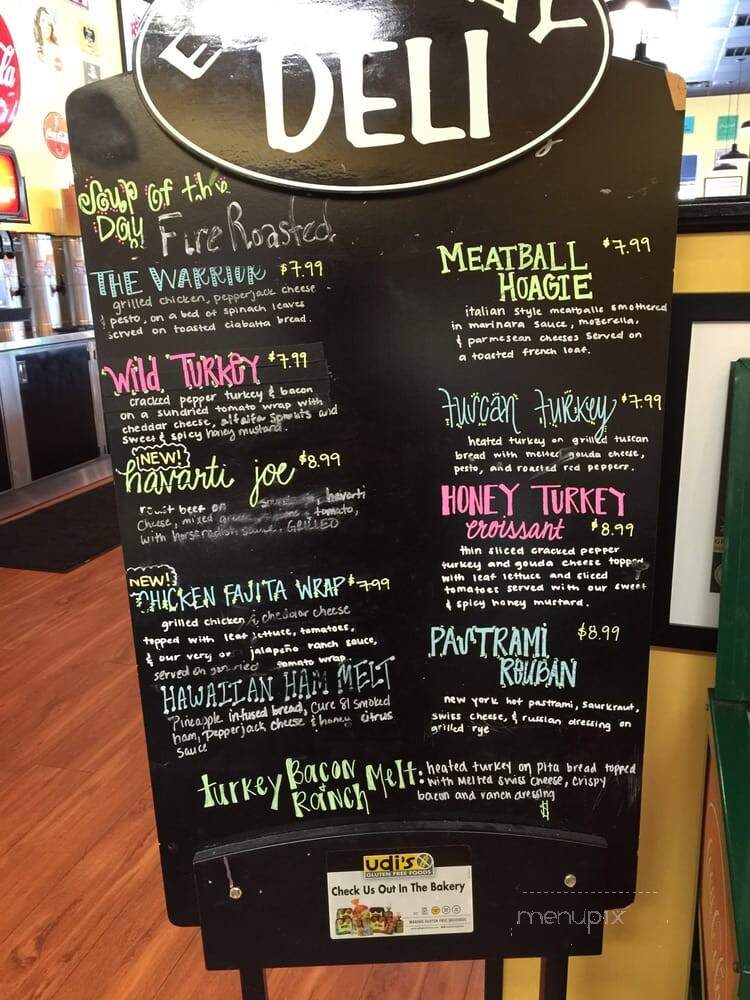 DELI
Soup of the
Day Fire Roasted
THE WARRIOR $7.99
grilled chicken, pepperjack cheese
& pesto, on a bed of spinach leaves
served on toasted ciabatta bread.
Wild TURKEY $7.99
cracked pepper turkey & bacon
on a sundried tomato wrap with
cheddar cheese, alfalfa sprouts and
sweet & spicy honey mustard.
NEW!
havarti joe $8.99
roast beef on havarti
cheese, mixed tomato,
with horseradish sauce. GRILLED
NEW!
CHICKEN FAJITA WRAP $7.99
grilled chicken & cheddar cheese
topped with leaf lettuce, tomatoes,
& our very own jalapeño ranch sauce,
served on tomato wrap.
HAWAIIAN HAM MELT
Pineapple infused bread, Cure 81 smoked
ham, Pepperjack cheese & honey citrus
sauce
MEATBALL $7.99
HOAGIE
italian style meatballs smothered
in marinara sauce, mozerella,
& parmesean cheeses served on
a toasted french loaf.
tuscan turkey $7.99
heated turkey on grilled tuscan
bread with melted gouda cheese,
pesto, and roasted red peppers.
HONEY TURKEY
croissant $8.99
thin sliced cracked pepper
turkey and gouda cheese topped
with leaf lettuce and sliced
tomatoes served with our sweet
& spicy honey mustard.
PASTRAMI $8.99
ROUBAN
new york hot pastrami, saurkraut,
swiss cheese, & russian dressing on
grilled rye
turkey Bacon Ranch Melt: heated turkey on pita bread topped
with melted swiss cheese, crispy
bacon and ranch dressing
$
udi's
GLUTEN FREE FOODS
Check Us Out In The Bakery
menupix